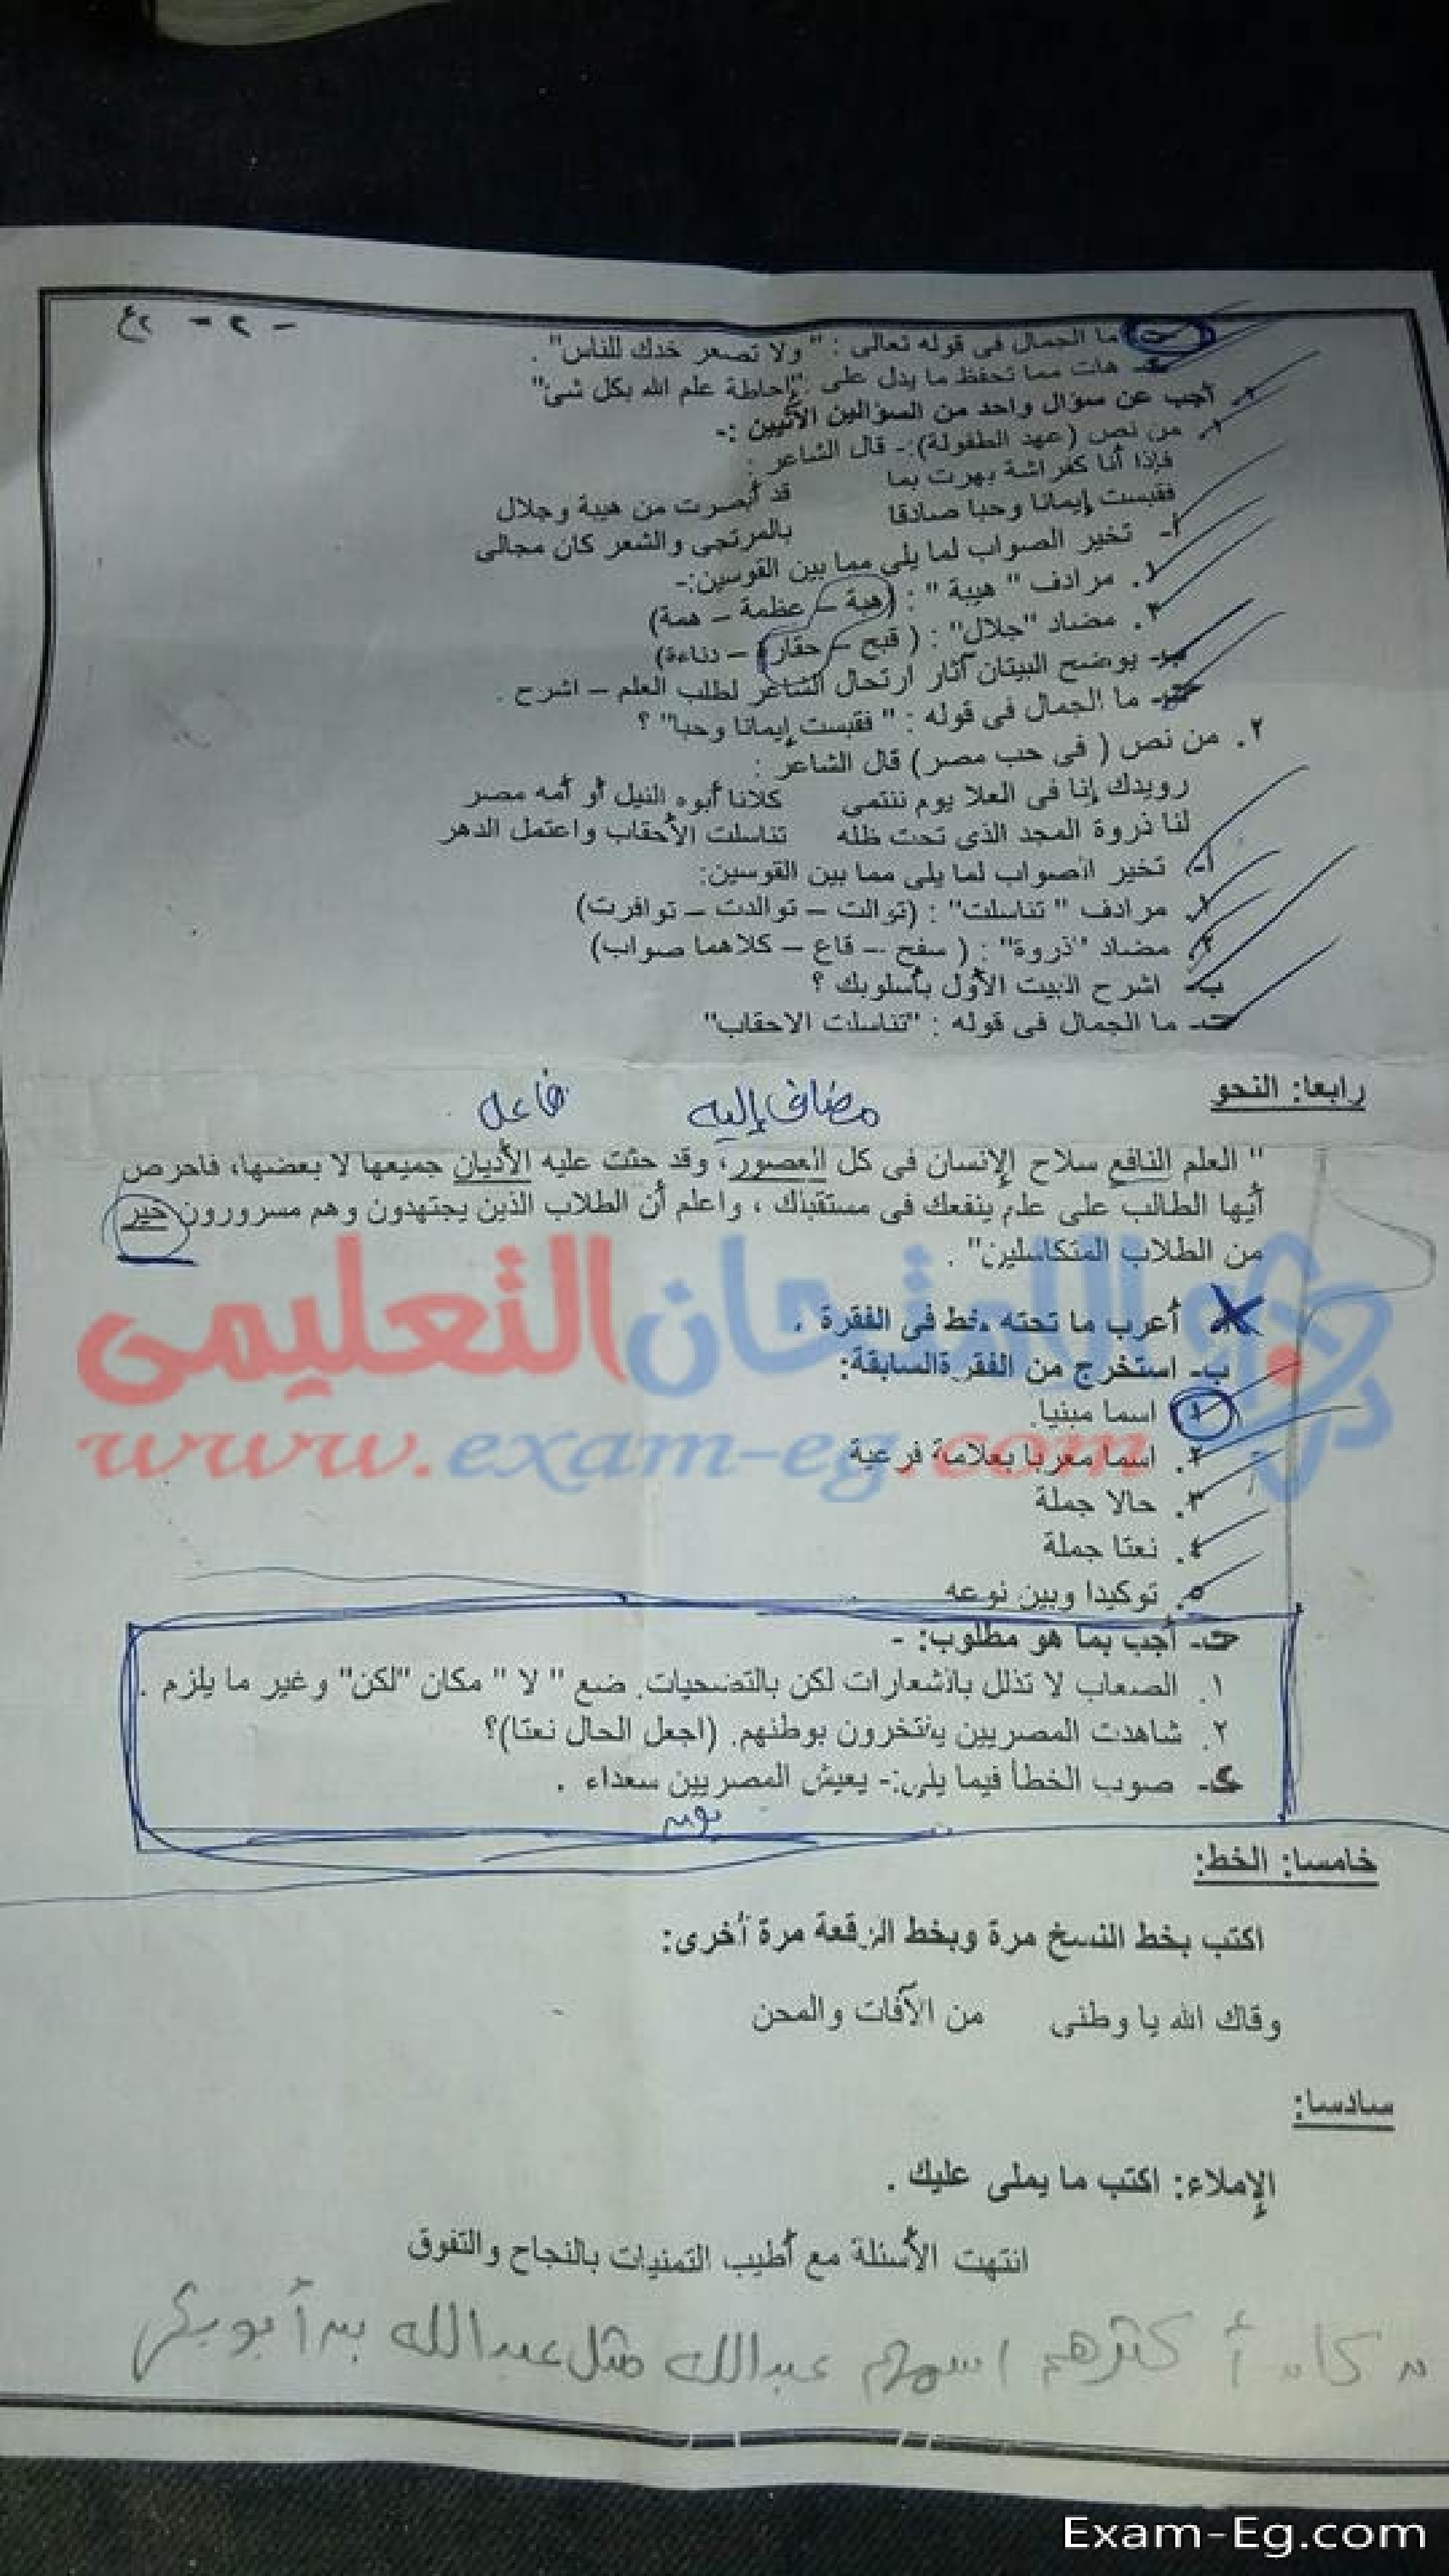 - ٢ -
ما الجمال فى قوله تعالى : " ولا تصعر خدك للناس" .
هات مما تحفظ ما يدل على :"إحاطة علم الله بكل شئ"
أجب عن سؤال واحد من السؤالين الآتيين :-
من نص (عهد الطفولة):- قال الشاعر :
فإذا أنا كفراشة بهرت بما قد أبصرت من هيبة وجلال
فقبست إيمانا وحبا صادقا بالمرتجى والشعر كان مجالى
أ- تخير الصواب لما يلى مما بين القوسين:-
١. مرادف " هيبة " : (هبة – عظمة – همة)
٢. مضاد "جلال" : ( قبح – حقارة – دناءة)
ب- يوضح البيتان آثار ارتحال الشاعر لطلب العلم – اشرح .
حـ- ما الجمال فى قوله : " فقبست إيمانا وحبا" ؟
٢. من نص ( فى حب مصر) قال الشاعر :
رويدك إنا فى العلا يوم ننتمى كلانا أبوه النيل أو أمه مصر
لنا ذروة المجد الذى تحت ظله تناسلت الأحقاب واعتمل الدهر
أ- تخير الصواب لما يلى مما بين القوسين:
١. مرادف " تناسلت" : (توالت – توالدت – توافرت)
٢. مضاد "ذروة" : ( سفح – قاع – كلاهما صواب)
ب- اشرح البيت الأول بأسلوبك ؟
حـ- ما الجمال فى قوله : "تناسلت الاحقاب"
رابعا: النحو
مضاف إليه فاعل
" العلم النافع سلاح الإنسان فى كل العصور، وقد حثت عليه الأديان جميعها لا بعضها، فاحرص
أيها الطالب على علم ينفعك فى مستقبلك ، واعلم أن الطلاب الذين يجتهدون وهم مسرورون خير
من الطلاب المتكاسلين" .
أعرب ما تحته خط فى الفقرة .
ب- استخرج من الفقرةالسابقة:
١. اسما مبنيا.
٢. اسما معربا بعلامة فرعية
٣. حالا جملة
٤. نعتا جملة
٥. توكيدا وبين نوعه
حـ- أجب بما هو مطلوب: -
١. الصعاب لا تذلل بالشعارات لكن بالتضحيات. ضع " لا " مكان "لكن" وغير ما يلزم .
٢. شاهدت المصريين يفتخرون بوطنهم. (اجعل الحال نعتا)؟
د- صوب الخطأ فيما يلى:- يعيش المصريين سعداء .
خامسا: الخط:
اكتب بخط النسخ مرة وبخط الرقعة مرة أخرى:
وقاك الله يا وطنى من الآفات والمحن
سادسا:
الإملاء: اكتب ما يملى عليك .
انتهت الأسئلة مع أطيب التمنيات بالنجاح والتفوق
أكثرهم اسمهم عبدالله مثل عبدالله بن أبو بكر
الامتحان التعليمى
www.exam-eg.com
Exam-Eg.com